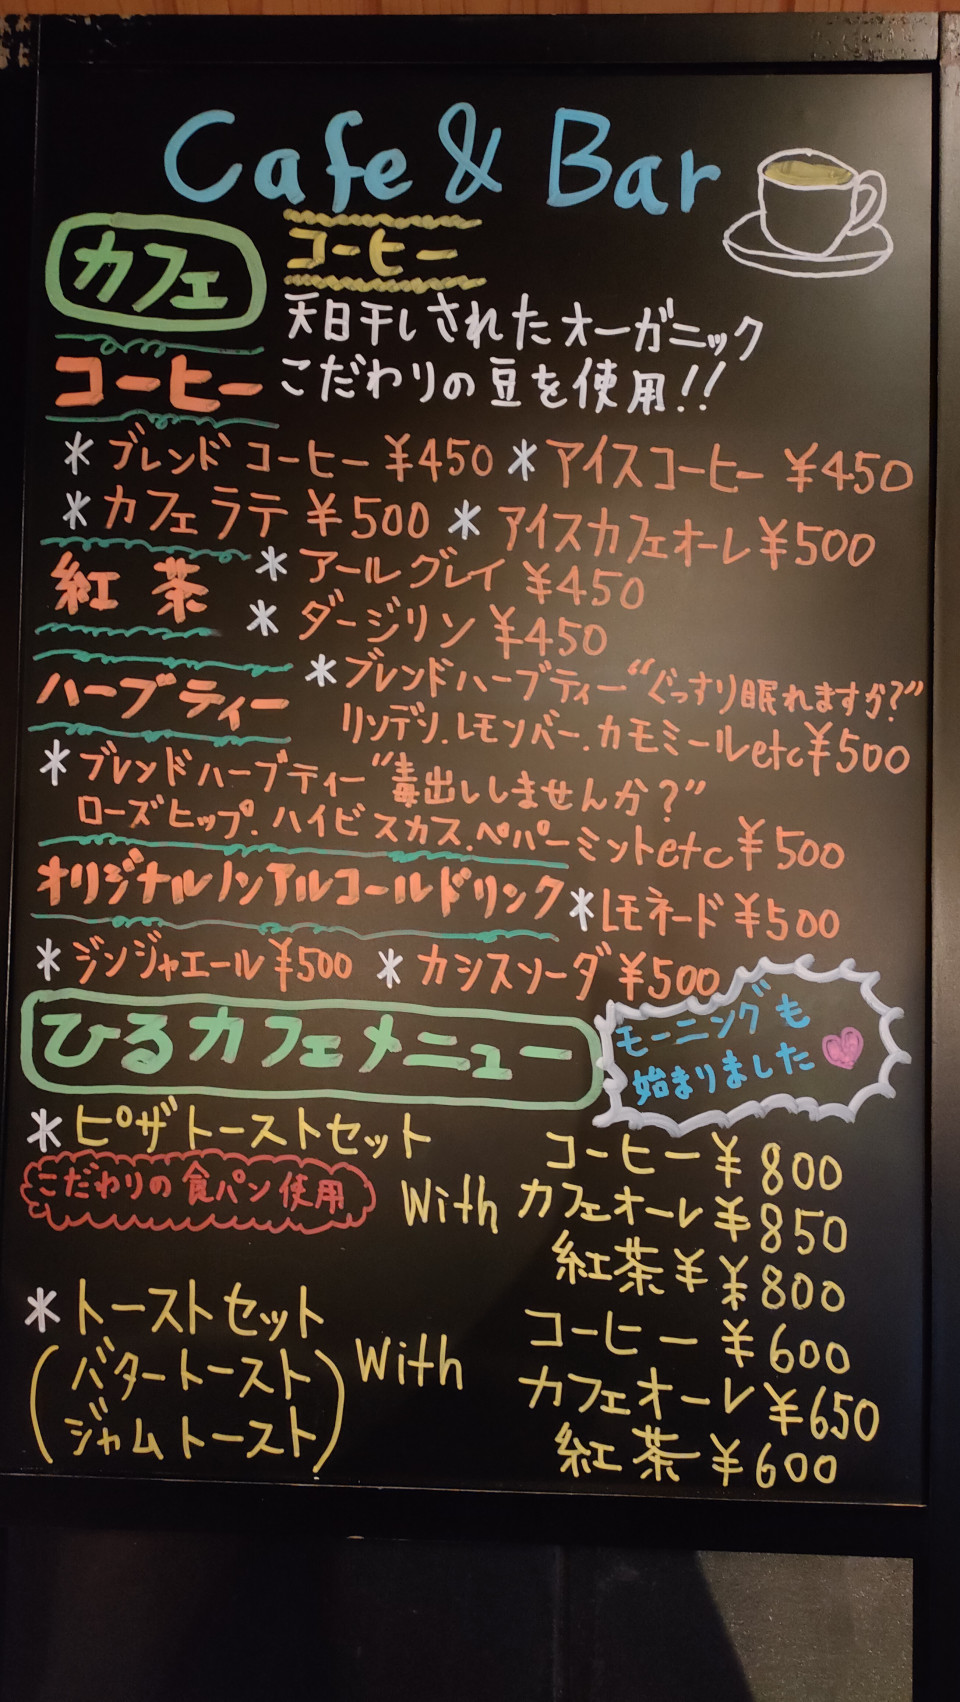 Cafe & Bar
カフェ
コーヒー
天日干しされたオーガニック
こだわりの豆を使用!!
コーヒー
*ブレンドコーヒー ¥450 *アイスコーヒー ¥450
*カフェラテ ¥500 *アイスカフェオーレ ¥500
紅茶
*アールグレイ ¥450
*ダージリン ¥450
ハーブティー
*ブレンドハーブティー“ぐっすり眠れますか?”
リンデン.レモンバー.カモミールetc ¥500
*ブレンドハーブティー“毒出ししませんか?”
ローズヒップ.ハイビスカス.ペパーミントetc ¥500
オリジナルノンアルコールドリンク *レモネード ¥500
*ジンジャエール ¥500 *カシスソーダ ¥500
ひるカフェメニュー
モーニングも
始まりました
*ピザトーストセット
こだわりの食パン使用
With
コーヒー ¥800
カフェオーレ ¥850
紅茶 ¥ ¥800
*トーストセット
(バタートースト
ジャムトースト)
With
コーヒー ¥600
カフェオーレ ¥650
紅茶 ¥600